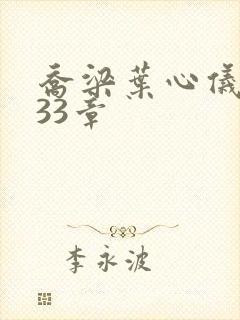 乔梁叶心仪
33章
李永波